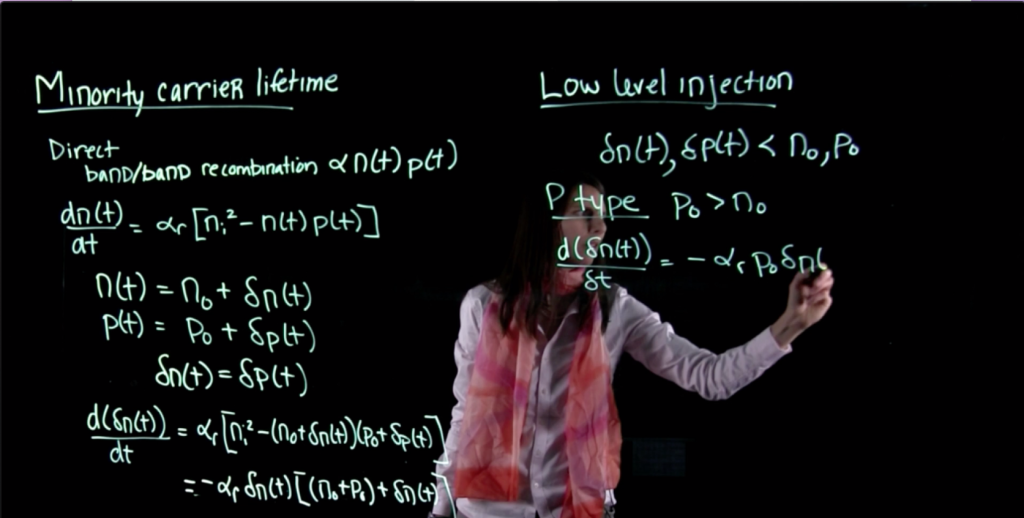 Minority carrier lifetime
Direct
band/band recombination ∝ n(t) p(t)
dn(t)/dt = αr [ni² - n(t) p(t)]
n(t) = n₀ + δn(t)
p(t) = p₀ + δp(t)
δn(t) = δp(t)
d(δn(t))/dt = αr [ni² - (n₀+δn(t))(p₀+δp(t)]
= -αr δn(t) [(n₀+p₀) + δn(t)]
Low level injection
δn(t), δp(t) < n₀, p₀
P type p₀ > n₀
d(δn(t))/δt = - αr p₀ δn(